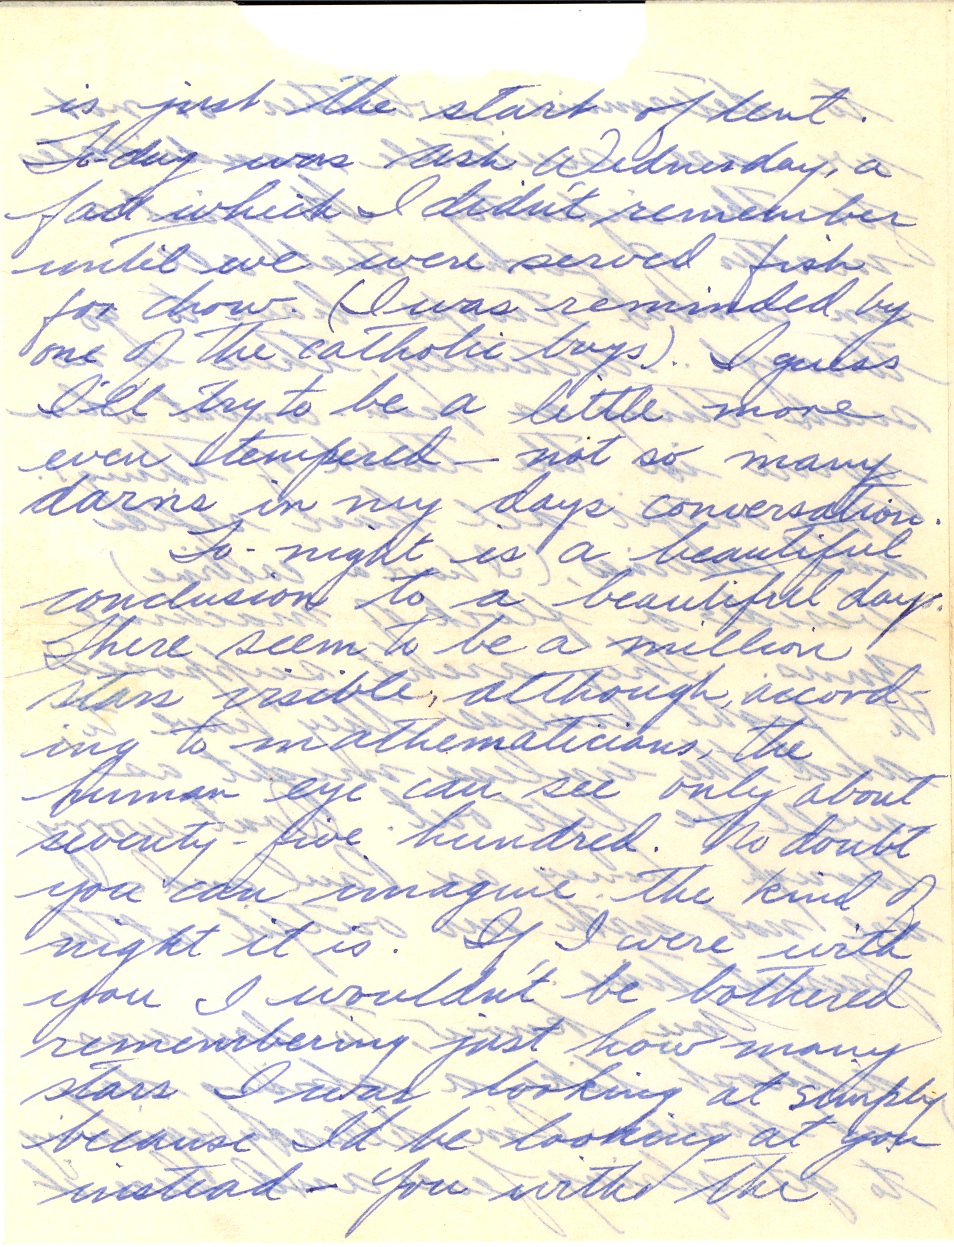 is just the start of Lent.
To-day was Ash Wednesday, a
fact which I didn't remember
until we were served fish
for chow. (I was reminded by
one of the catholic boys). I guess
I'll try to be a little more
even tempered — not so many
darns in my days conversation.
To-night is a beautiful
conclusion to a beautiful day.
There seem to be a million
stars visible, although, accord-
ing to mathematicians, the
human eye can see only about
seventy-five hundred. No doubt
you can imagine the kind of
night it is. If I were with
you I wouldn't be bothered
remembering just how many
stars I was looking at simply
because I'd be looking at you
instead — You with the